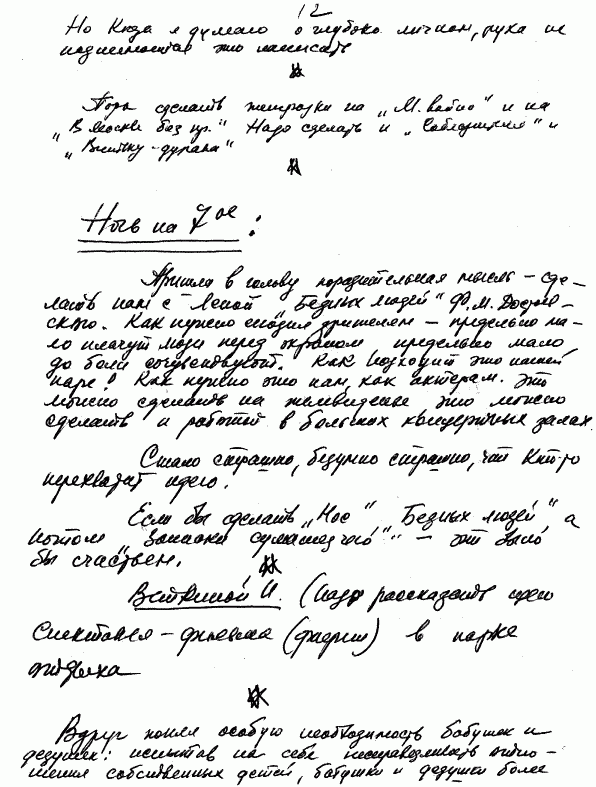 12
Но когда я думаю о глубоко личном, рука не
поднимается это написать
Пора сделать на „М. и на
„В Москве Надо сделать и и
Ночь на 7ое :
Пришла в голову поразительная мысль – сде-
лать нам с Леной „Бедных людей" Ф. М. Достоев-
ского. Как нужно сегодня зрителям – предельно ма-
ло плачут люди перед экраном, предельно мало
до боли сочувствуют. Как подходит это нашей
паре! Как нужно это нам, как актерам. Это
можно сделать на телевидение это можно
сделать и работой в больших концертных залах.
Стало страшно, безумно страшно, что кто-то
перехватит идею.
Если бы сделать „Нос" „Бедных людей", а
потом „Записки сумасшедшего" – я был
бы счастлив.
И. (надо рассказать идею
спектакля – фильма (феерии) в парке
отдыха
Вдруг понял особую необходимость бабушек и
дедушек: испытав на себе несправедливость отно-
шения собственных детей, бабушки и дедушки более